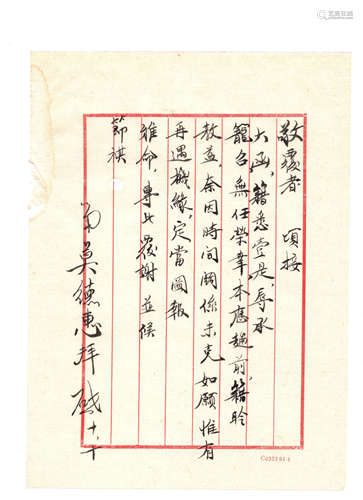 敬覆者 頃接
大函，籍悉壹是，辱承
寵召無任榮幸本應趨前，籍聆
教益，奈因時間關係未克如願惟有
再遇機緣，定當圖報
雅命，專此覆謝 並候
節祺
弟莫德惠拜啟 十、十